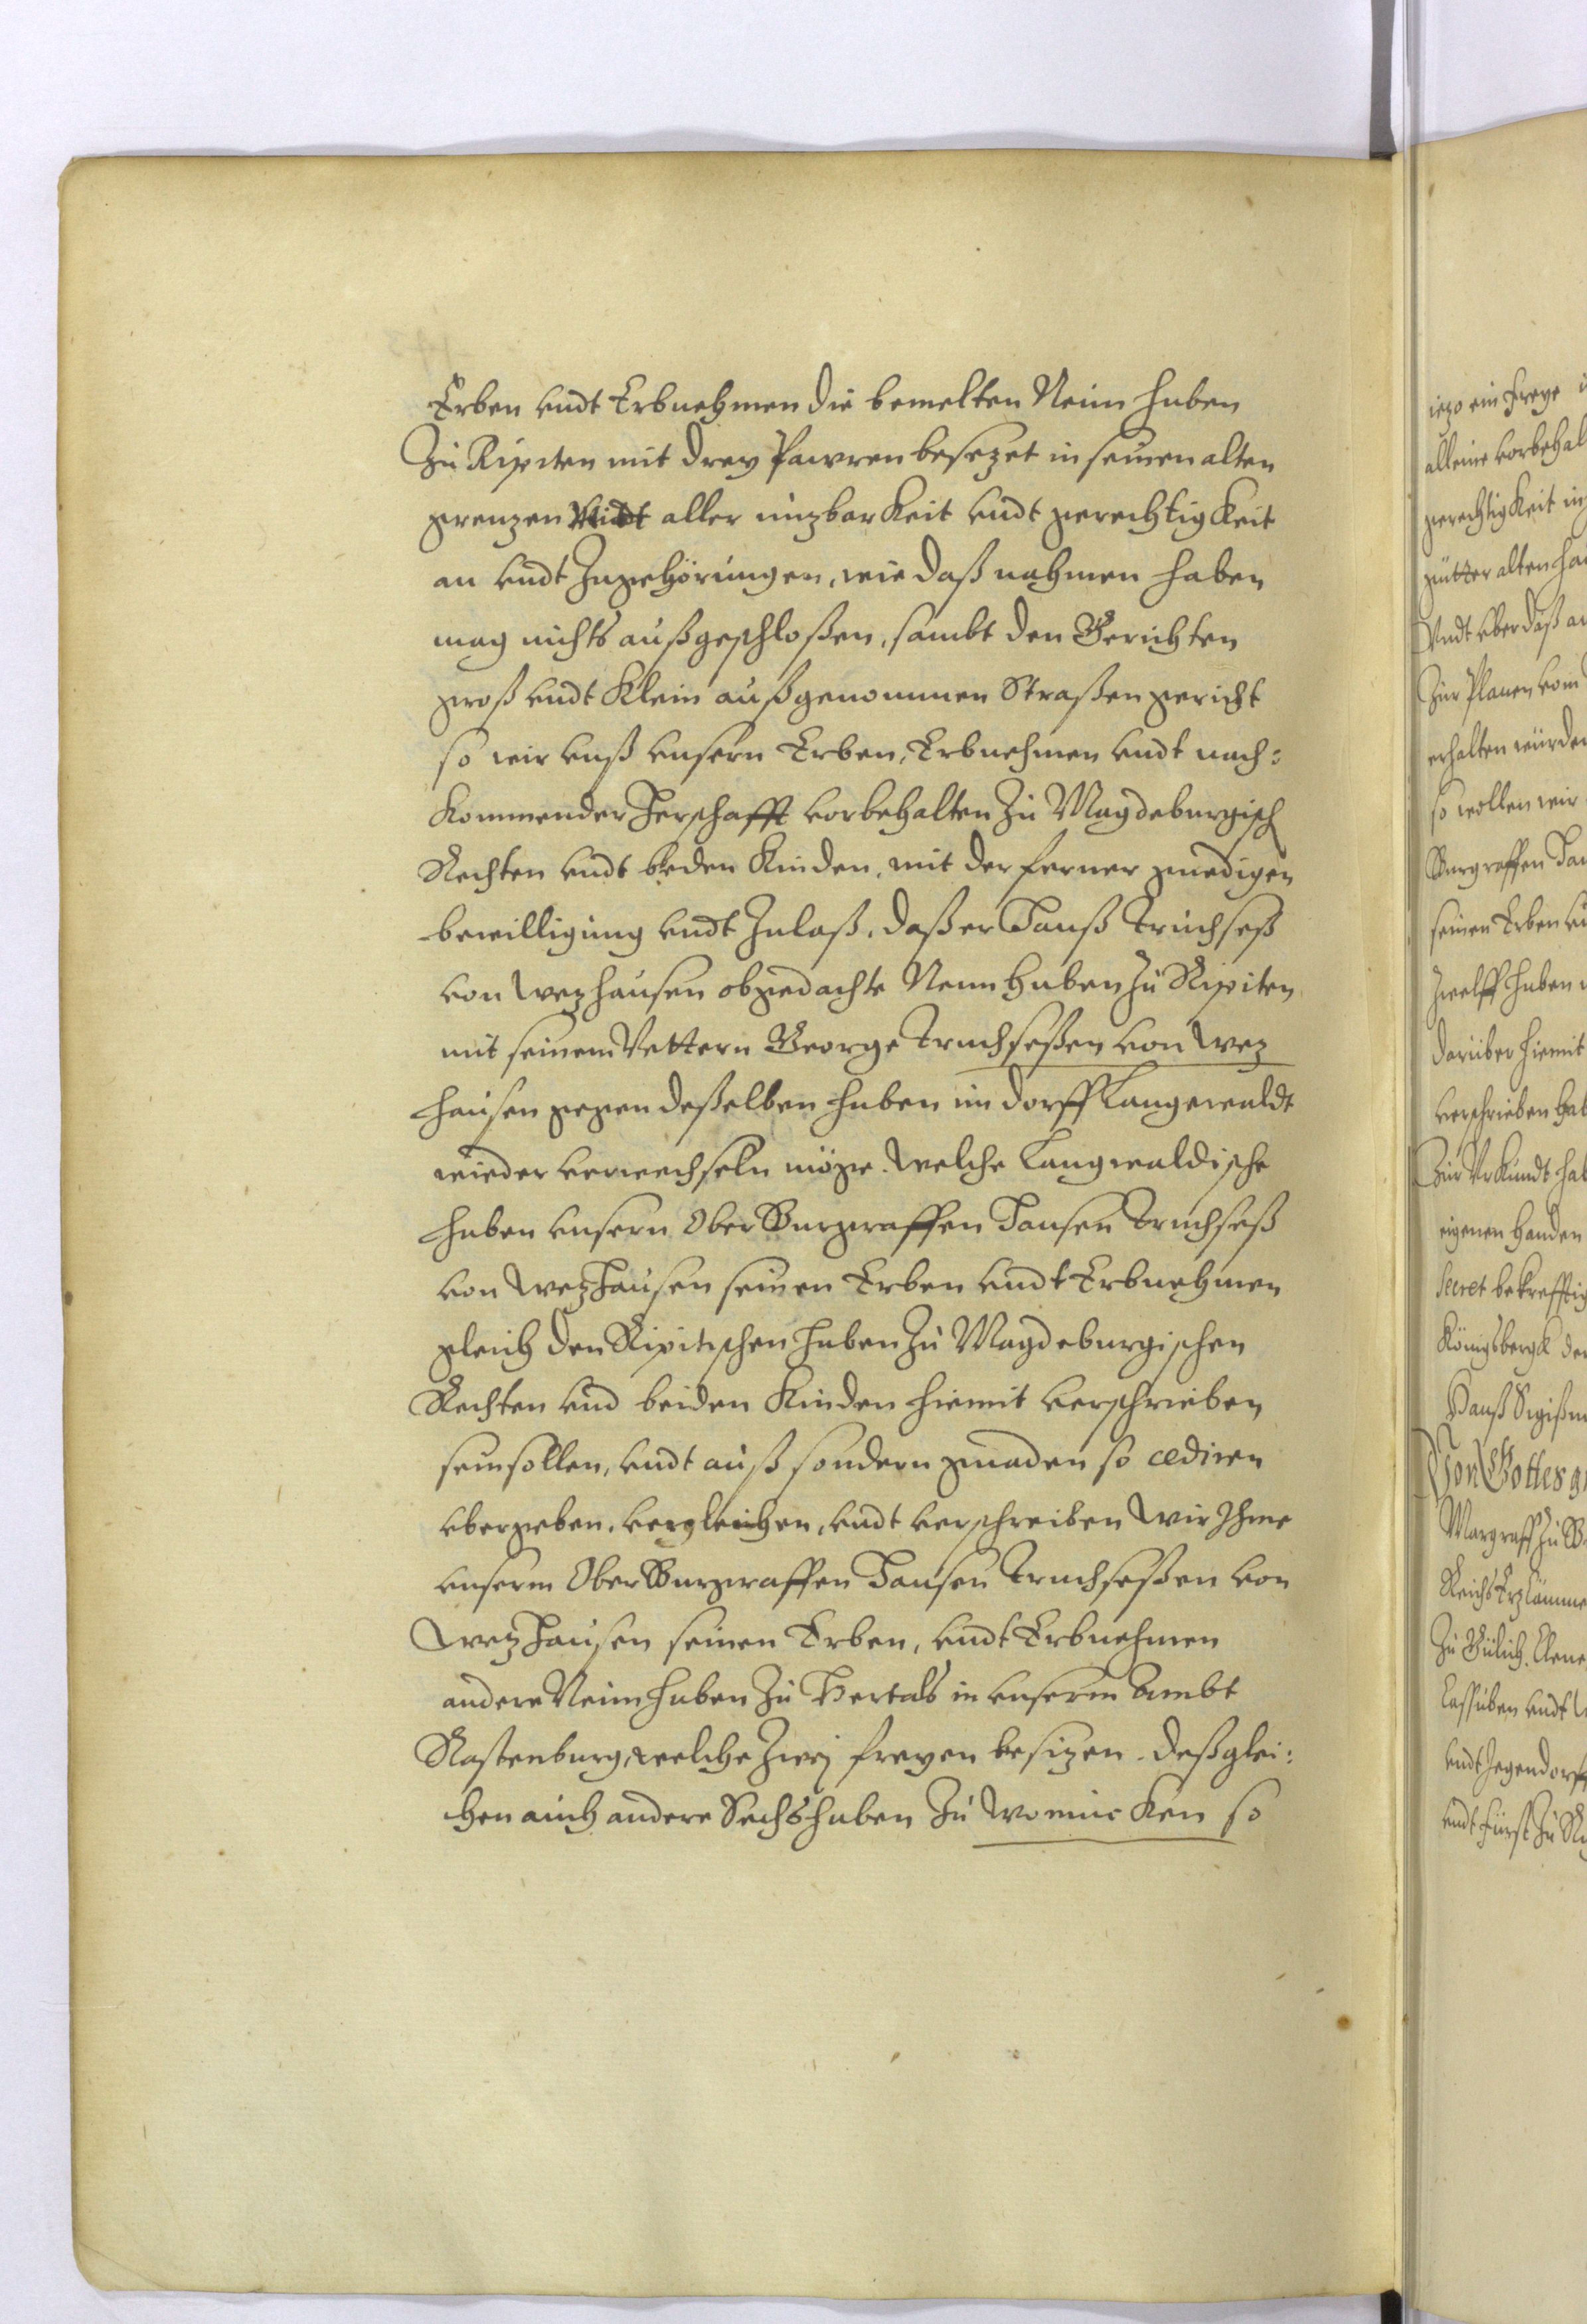 Erben vndt Erbnehmen die bemelten Neun huben
Zu Ripiten mit drey Pawren besezet in seinen alten
grenzen Midt aller nuzbarkeit vndt gerechtigkeit
an vndt Zugehörungen, wie daß nahmen haben
mag nichts außgeschloßen, sambt den Gerichten
groß vndt Klein außgenommen Straßengericht
so wir vnß vnsern Erben, Erbnehmen vndt nach:
kommender Herschafft vorbehalten Zu Magdeburgisch
Rechten vndt beden Kinden, mit der ferner gnedigen
bewilligung vndt Zulaß, daß er Hanß Truchseß
von Wezhausen obgedachte Neun huben Zu Ripiten
mit seinem Vettern George Truchseßen von Wez
hausen gegen deßelben huben im dorff Langewaldt
wieder verwechseln möge. Welche Langwaldische
huben vnsern OberBurggraffen Hansen Truchseß
von Wezhausen seinen Erben vndt Erbnehmen
gleich den Ripitischen huben Zu Magdeburgischen
Rechten vnd beiden Kinden hiemit verschrieben
sein sollen, vndt auß sondern gnaden so cediren
vbergeben, vergleichen, vndt verschreiben Wir Ihme
vnserm OberBurggraffen Hansen Truchseßen von
Wezhausen seinen Erben, vndt Erbnehmen
andere Neun huben Zu Bertals in vnserm Ambt
Rastenburg, welche Zwej freyen besizen. deßglei:
chen auch andere Sechs huben Zu Wominicken so
iezo ein Freye
alleine vorbehal
gerechtigkeit in
gütter alten
Vndt vber daß an
Zur Planen vom
erhalten würden
so wollen wir
Burgraffen Han
seinen Erben
Zwelff huben
darüber hiemit
verschrieben hab
Zur Vrkundt hab
eigenen handen
Secret bekrefftig
Königsbergk den
Hanß Sigißm
Von Gottes g
Margraff Zu B
Reichs Erzkämme
Zu Gülich. Cleve
Caßuben vndt
vndt Jegendorff
vndt Fürst Zu Rü